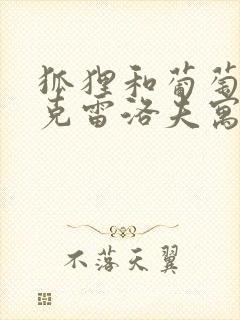 狐狸和葡萄
克雷洛夫寓
不落天翼